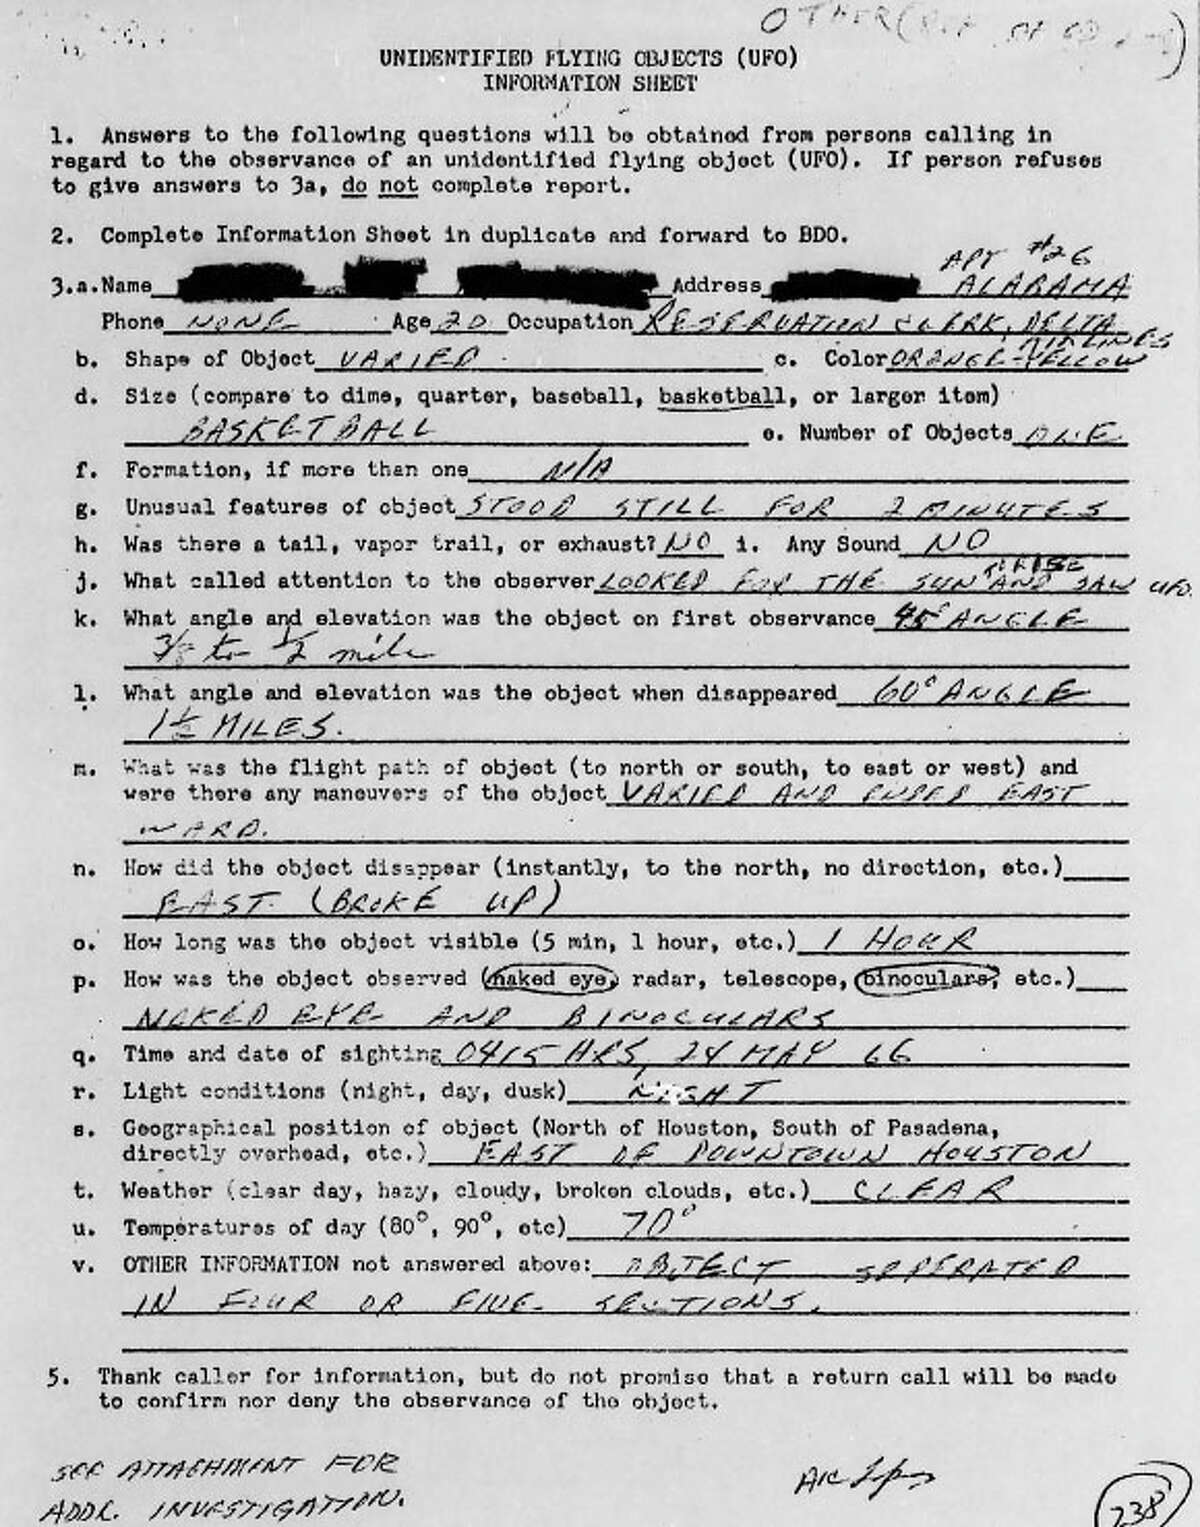 OTHER (
UNIDENTIFIED FLYING OBJECTS (UFO)
INFORMATION SHEET
1. Answers to the following questions will be obtained from persons calling in
regard to the observance of an unidentified flying object (UFO). If person refuses
to give answers to 3a, do not complete report.
2. Complete Information Sheet in duplicate and forward to BDO.
APT #26
3.a. Name Address ALABAMA
Phone NONE Age 20 Occupation RESERVATION CLERK, DELTA
AIRLINES
b. Shape of Object VARIED c. Color ORANGE-YELLOW
d. Size (compare to dime, quarter, baseball, basketball, or larger item)
BASKETBALL e. Number of Objects ONE
f. Formation, if more than one N/A
g. Unusual features of object STOOD STILL FOR 2 MINUTES
h. Was there a tail, vapor trail, or exhaust? NO i. Any Sound NO
j. What called attention to the observer LOOKED FOR THE SUN TO RISE AND SAW UFO.
k. What angle and elevation was the object on first observance 45° ANGLE
to 1/2 mile
l. What angle and elevation was the object when disappeared 60° ANGLE
1 1/2 MILES.
m. What was the flight path of object (to north or south, to east or west) and
were there any maneuvers of the object VARIED AND ENDED EAST
WARD.
n. How did the object disappear (instantly, to the north, no direction, etc.)
EAST (BROKE UP)
o. How long was the object visible (5 min, 1 hour, etc.) 1 HOUR
p. How was the object observed (naked eye, radar, telescope, binoculars, etc.)
NAKED EYE AND BINOCULARS
q. Time and date of sighting 0415 HRS, 24 MAY 66
r. Light conditions (night, day, dusk) NIGHT
s. Geographical position of object (North of Houston, South of Pasadena,
directly overhead, etc.) EAST OF DOWNTOWN HOUSTON
t. Weather (clear day, hazy, cloudy, broken clouds, etc.) CLEAR
u. Temperatures of day (80°, 90°, etc) 70°
v. OTHER INFORMATION not answered above: OBJECT SEPERATED
IN FOUR OR FIVE SECTIONS.
5. Thank caller for information, but do not promise that a return call will be made
to confirm nor deny the observance of the object.
SEE ATTACHMENT FOR
ADDL. INVESTIGATION.
238